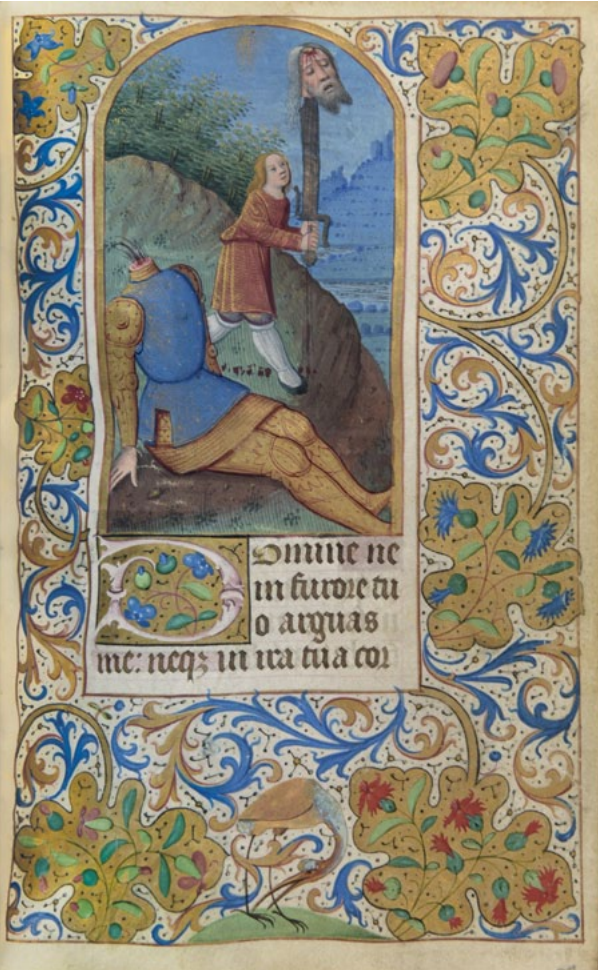 Domine ne
in furore tu
o arguas
me: neq; in ira tua cor